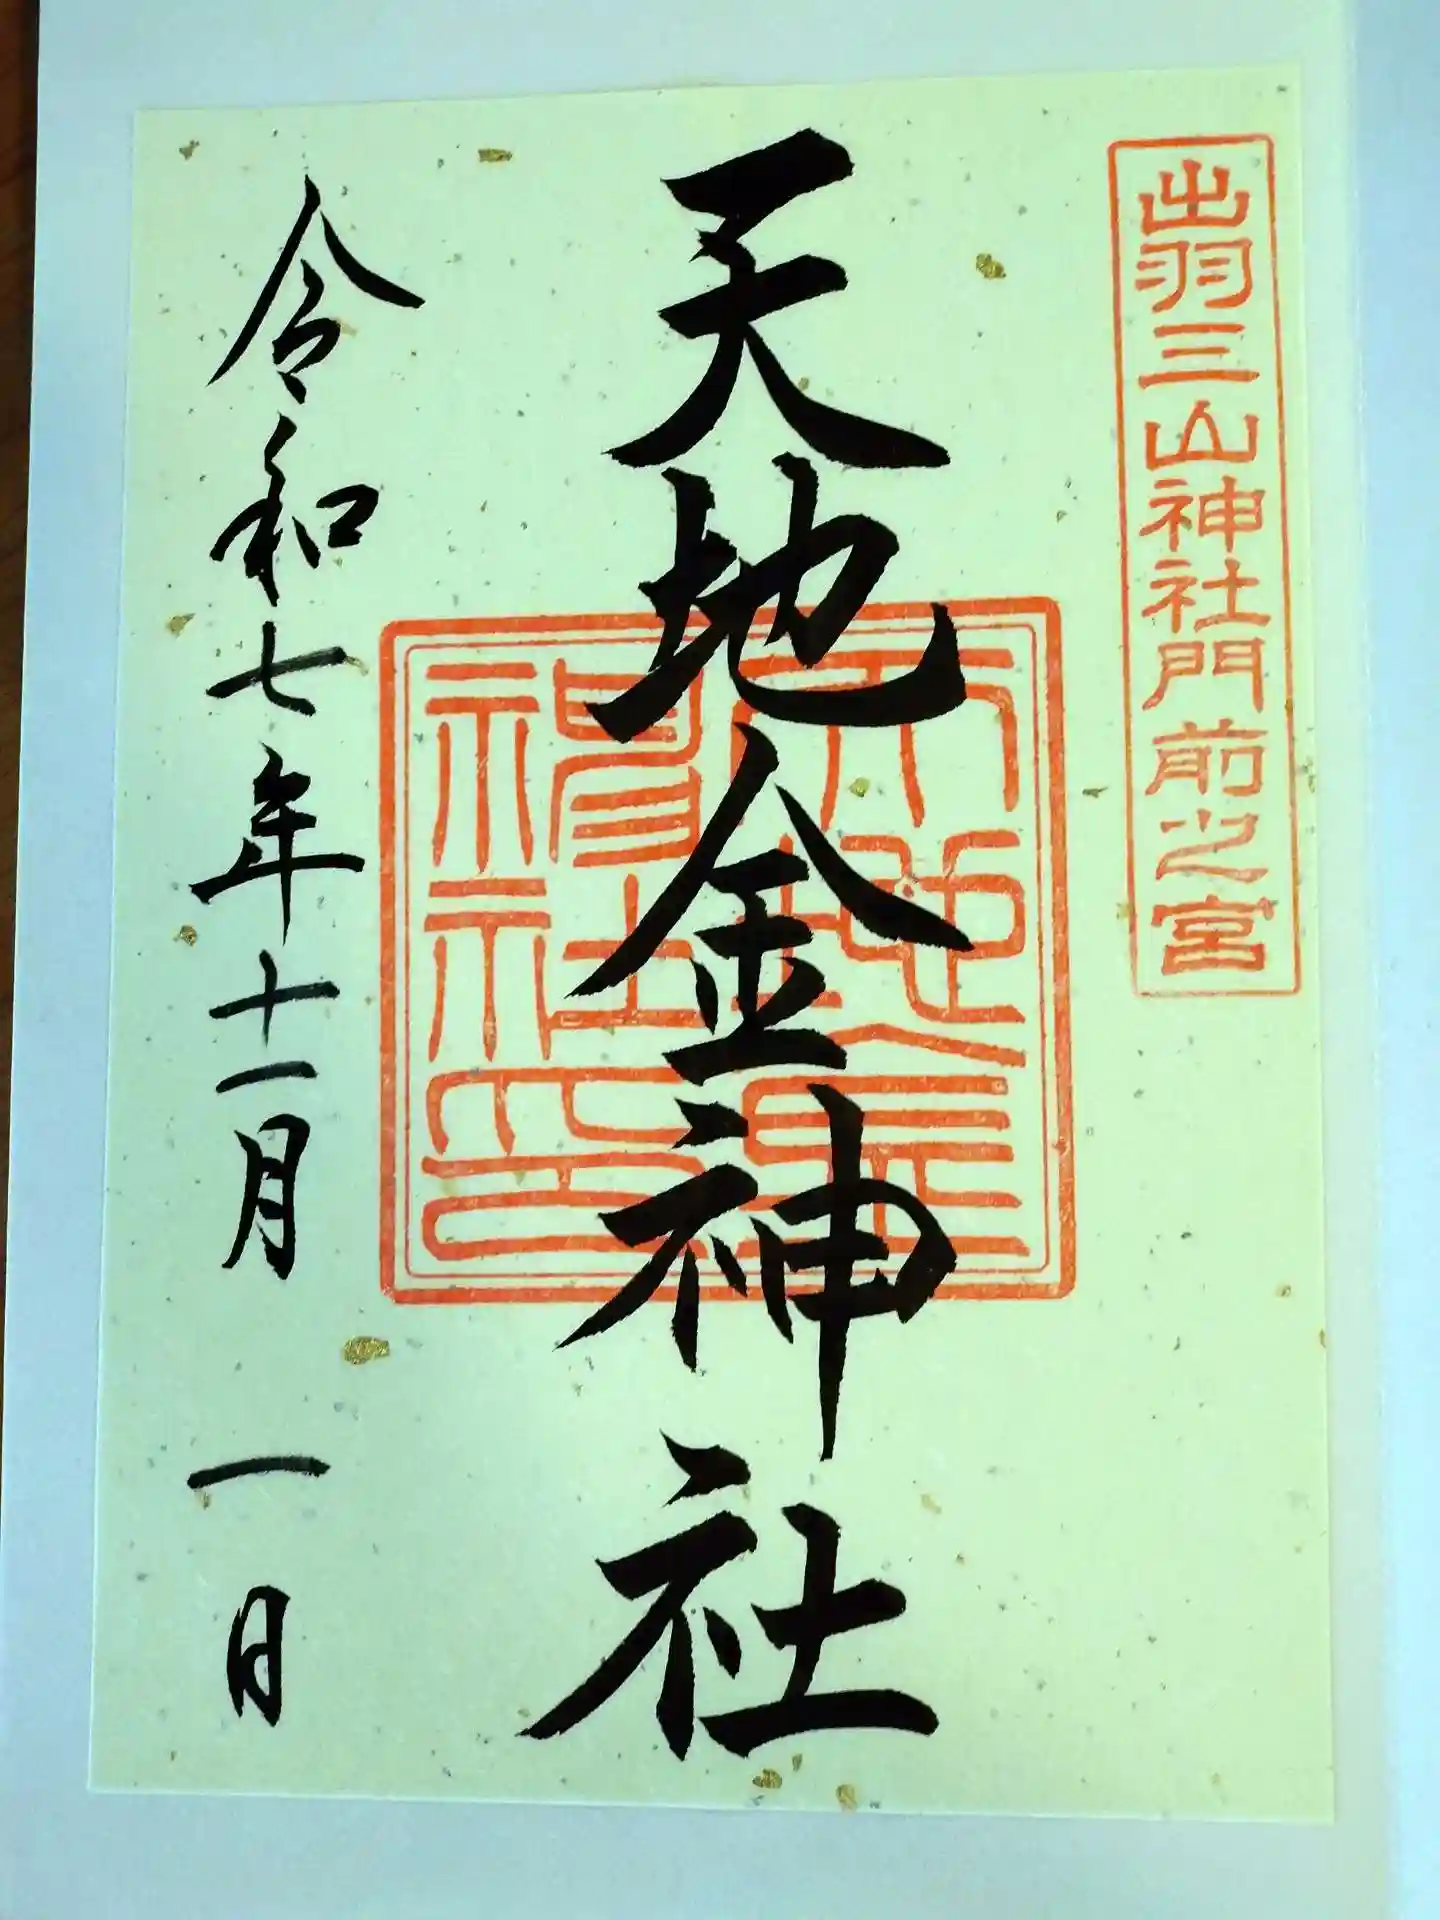 出羽三山神社門前之宮
天地金神社
天地金神社印
令和七年十一月 一日